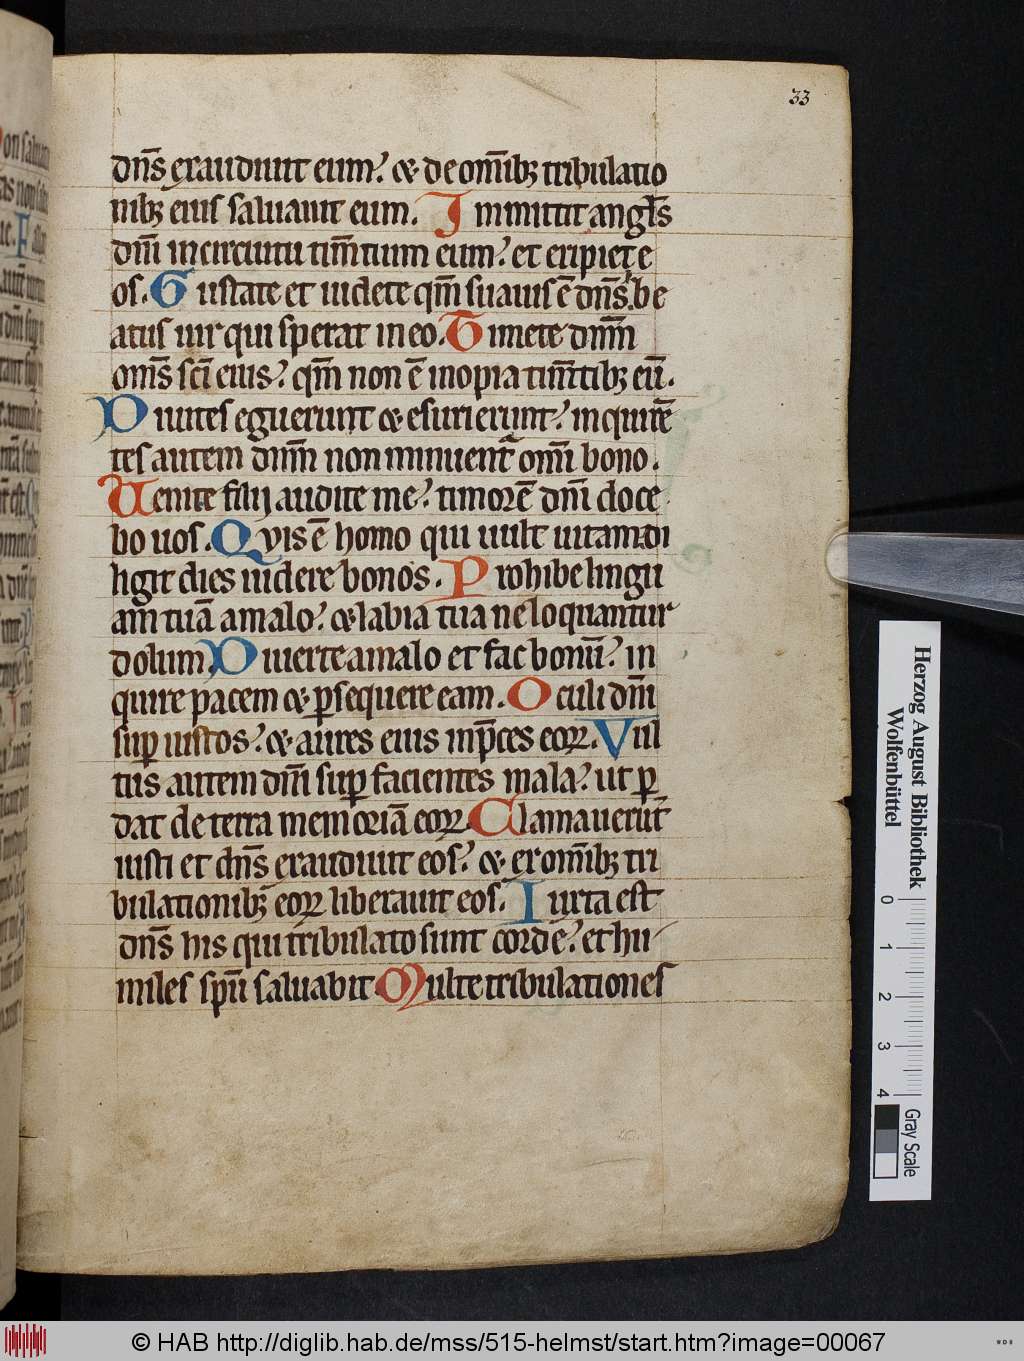 33
dn̄s exaudiuit eum? & de om̄ibꝫ tribulatio
nibꝫ eius saluauit eum. Immittit angl̄s
dn̄i in circuitu tim̄tium eum? et eripiet e
os. Gustate et uidete qm̄ suauis ē dn̄s. be
atus uir qui sperat in eo. Timete dn̄m
om̄s sc̄i eius? qm̄ non ē inopia tim̄tibꝫ eū.
Diuites eguerunt & esurierunt? inquirē
tes autem dn̄m non minuent᷑ om̄i bono.
Uenite filij audite me? timorē dn̄i doce
bo uos. Qvis ē homo qui uult uitam di
ligit dies uidere bonos. Prohibe lingu
am tuā a malo? & labia tua ne loquantur
dolum. Diuerte a malo et fac bonū? in
quire pacem & ꝑsequere eam. Oculi dn̄i
suꝑ iustos? & aures eius in p̄ces eoꝝ. Vul
tus autem dn̄i suꝑ facientes mala? ut ꝑ
dat de terra memoriā eoꝝ. Clamauerūt
iusti et dn̄s exaudiuit eos? & ex om̄ibꝫ tri
bulationibꝫ eoꝝ liberauit eos. Iuxta est
dn̄s his qui tribulato sunt corde? et hu
miles sp̄u saluabit Multe tribulationes
Herzog August Bibliothek
Wolfenbüttel
0 1 2 3 4
Gray Scale
© HAB http://diglib.hab.de/mss/515-helmst/start.htm?image=00067